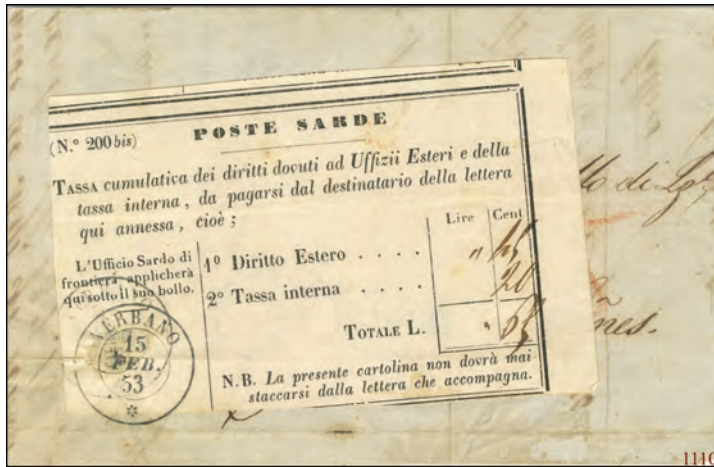 (N.º 200 bis) POSTE SARDE
TASSA cumulativa dei diritti dovuti ad Uffizii Esteri e della
tassa interna, da pagarsi dal destinatario della lettera
qui annessa, cioè;
L'Ufficio Sardo di
frontiera applicherà
qui sotto il suo bollo.
Lire Cent
1º Diritto Estero . . . . "
2º Tassa interna . . . . 20
TOTALE L. "
N.B. La presente cartolina non dovrà mai
staccarsi dalla lettera che accompagna.
VERBANO
15
FEB.
53
di
1110